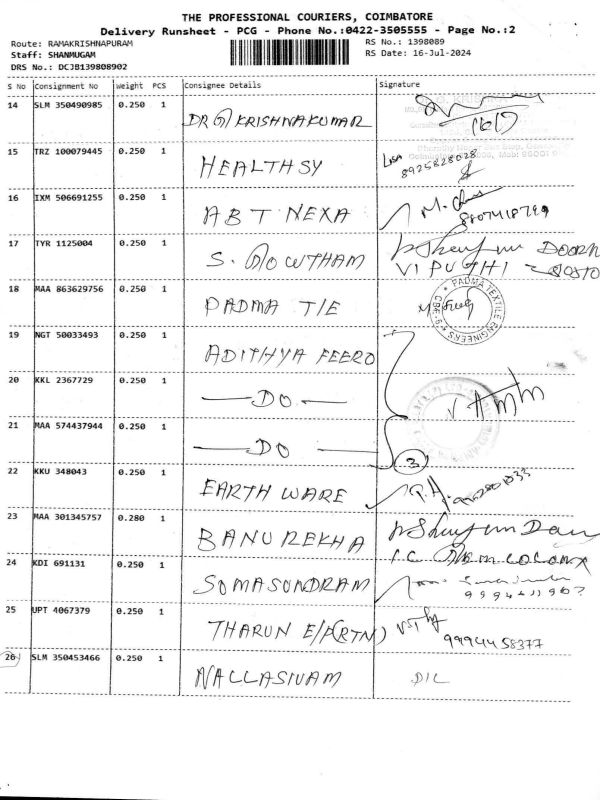 THE PROFESSIONAL COURIERS, COIMBATORE
Delivery Runsheet - PCG - Phone No.:0422-3505555 - Page No.:2
Route: RAMAKRISHNAPURAM
RS No.: 1398089
Staff: SHANMUGAM
RS Date: 16-Jul-2024
DRS No.: DCJB139808902
S No Consignment No Weight PCS Consignee Details Signature
14 SLM 350490985 0.250 1 DR G KRISHNAKUMAR
15 TRZ 100079445 0.250 1 HEALTHSY
8925828028
16 IXM 506691255 0.250 1 ABT NEXA
17 TYR 1125004 0.250 1 S. GOWTHAM
18 MAA 863629756 0.250 1 PADMA TIE
PADMA TEXTILE ENGINEERS CBE-9
19 NGT 50033493 0.250 1 ADITHYA FEERO
20 KKL 2367729 0.250 1 —DO—
21 MAA 574437944 0.250 1 —DO
3
22 KKU 348043 0.250 1 EARTH WARE
23 MAA 301345757 0.280 1 BANUREKHA
24 KDI 691131 0.250 1 SOMASUNDRAM
25 UPT 4067379 0.250 1 THARUN E/P(RTN)
9994458377
26 SLM 350453466 0.250 1 NALLASIVAM D/L